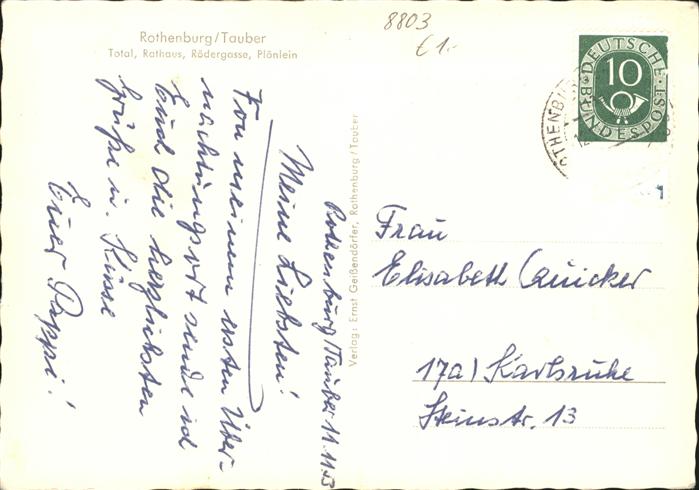 Rothenburg/Tauber
Total, Rathaus, Rödergasse, Plönlein
8803
€ 1.-
DEUTSCHE
10
BUNDESPOST
Rothenburg/Tauber 11.11.53
Meine Liebsten!
Von meinem ersten Über-
nachtungsort sende ich
Euch die herzlichsten
Grüße u. Küsse
Euer Pappi!
Verlag: Ernst Geißendörfer, Rothenburg/Tauber
Frau
Elisabeth Quicker
17a) Karlsruhe
Steinstr. 13